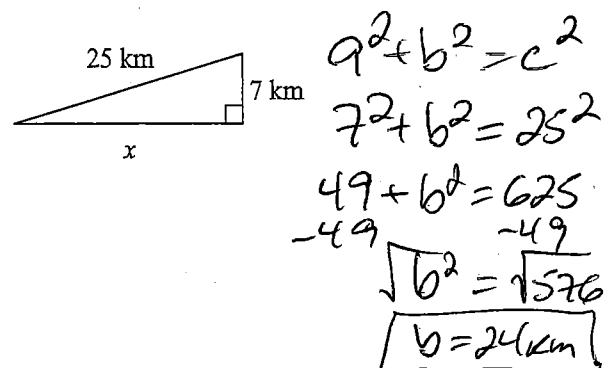 25 km
7 km
x
a² + b² = c²
7² + b² = 25²
49 + b² = 625
-49 -49
√b² = √576
b = 24 km